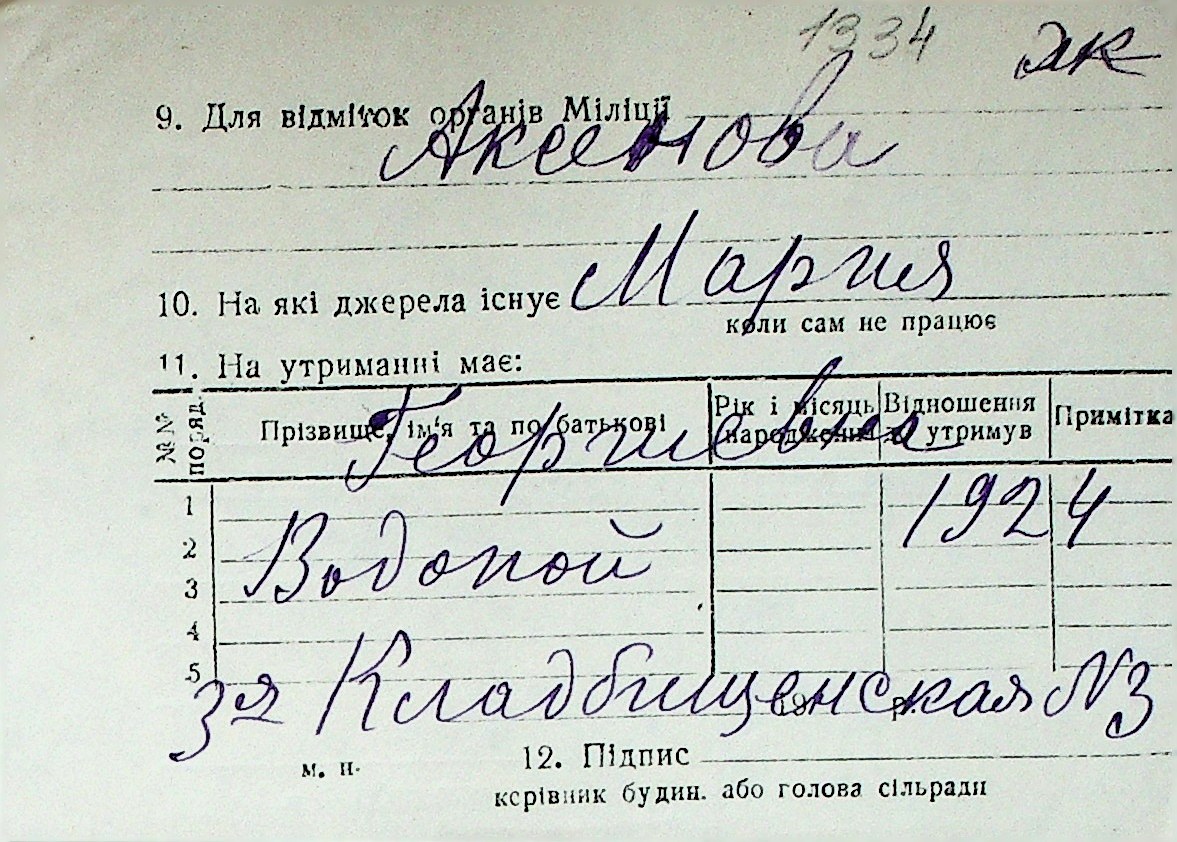 1334 ЖК
9. Для відміток органів Міліції
Аксенова
10. На які джерела існує
Мария
коли сам не працює
11. На утриманні має:
№№ поряд. Прізвище, ім'я та по батькові Рік і місяць народження Відношення до утримув Примітка
Георгиевна
1 1924
2 Водопой
3
4
5
3я Кладбищенская N3
19 р.
м. п. 12. Підпис
керівник будин. або голова сільради